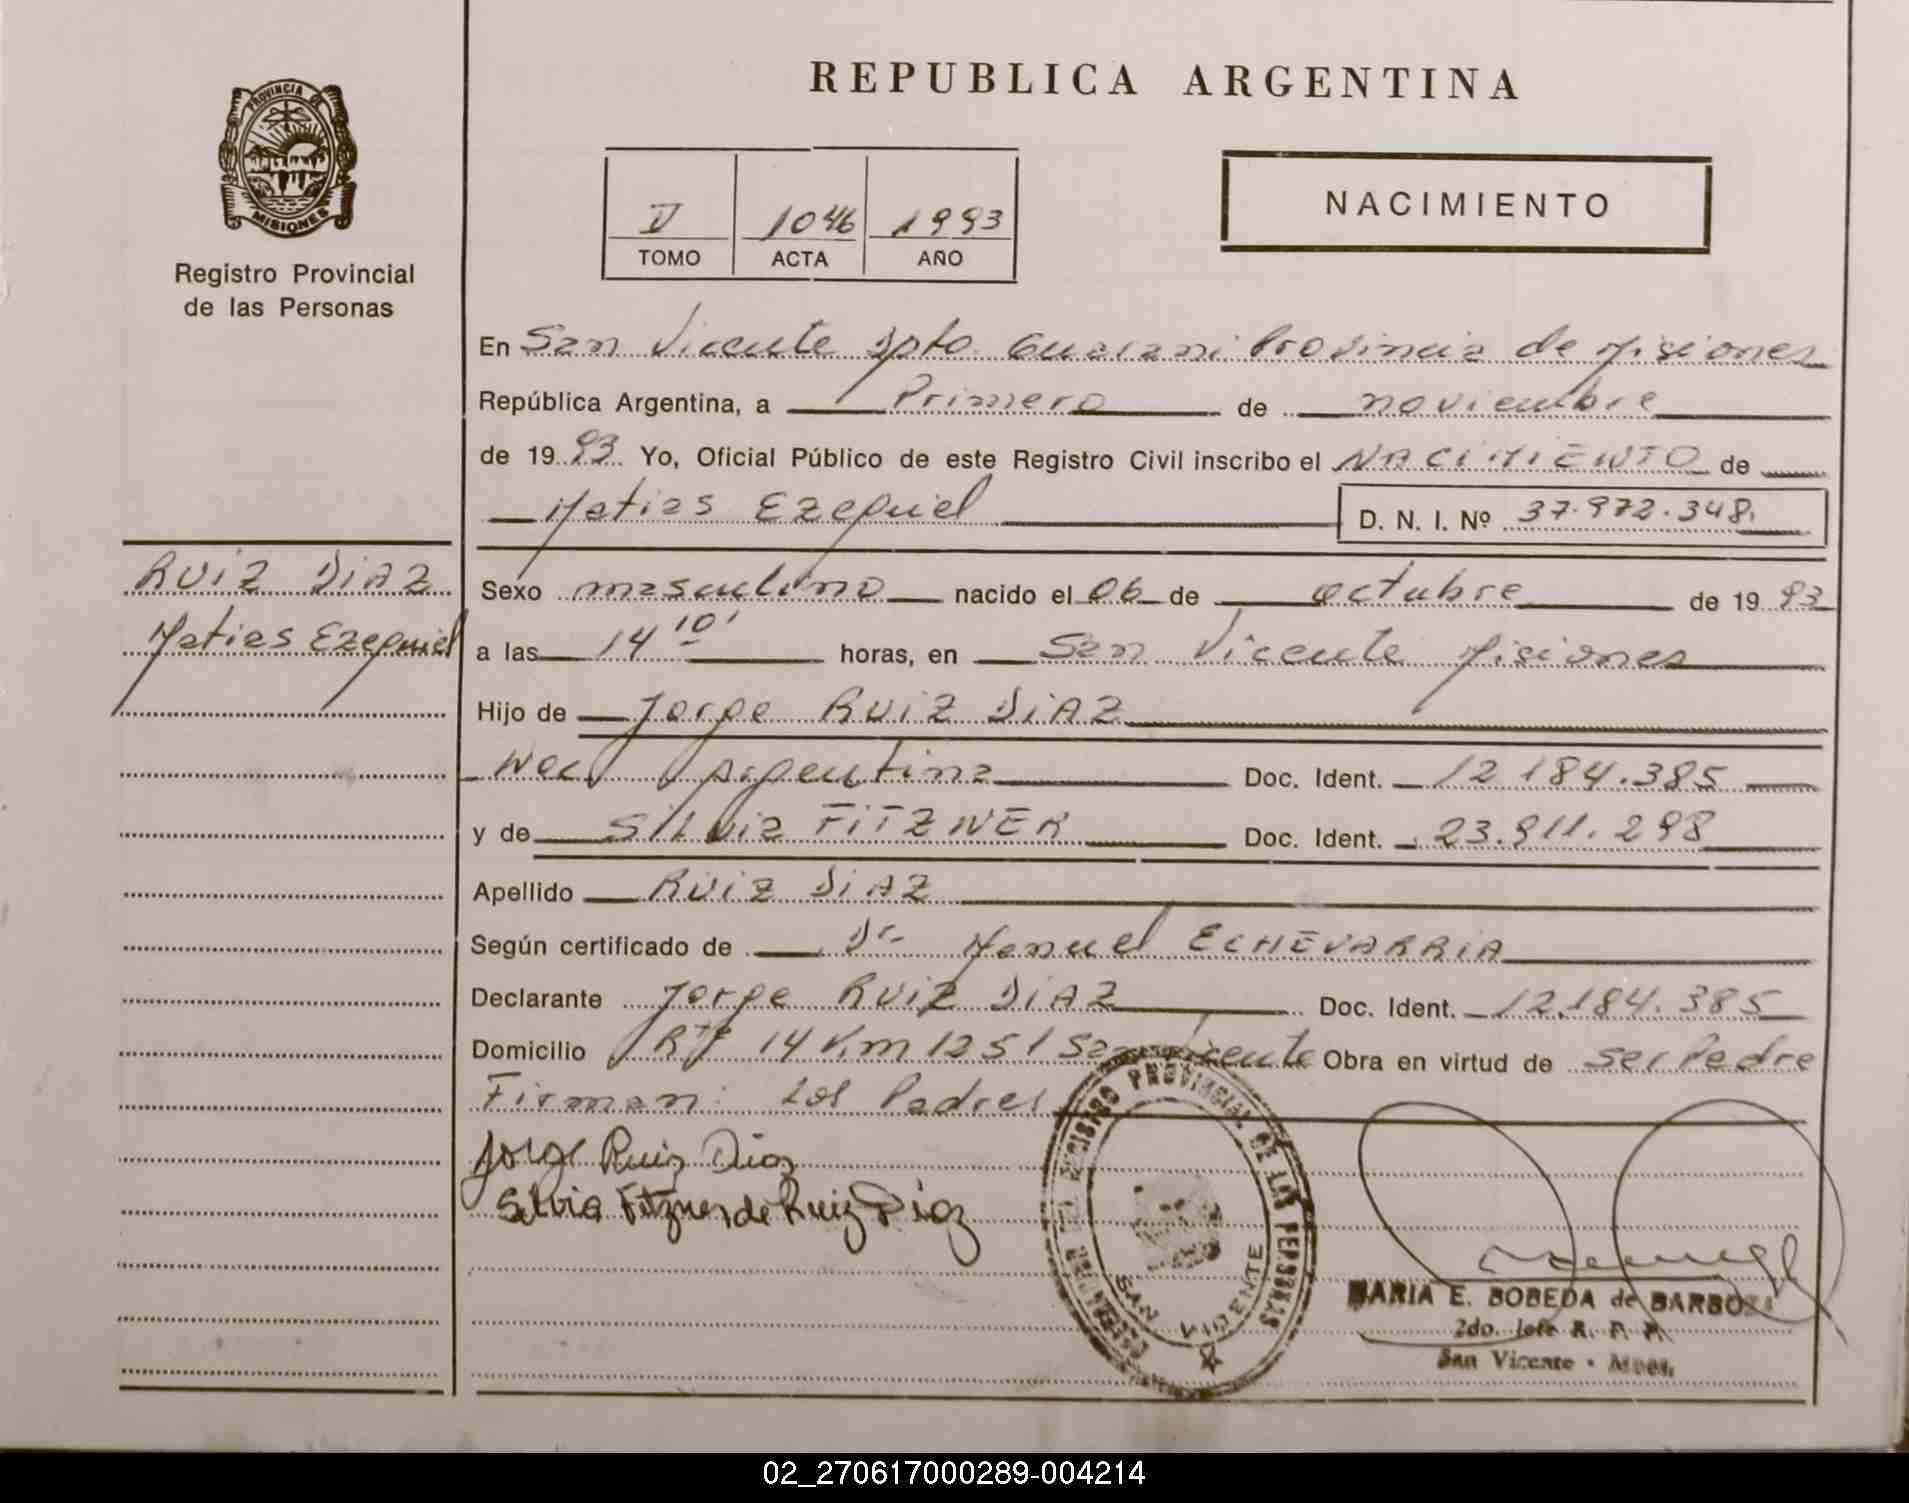 REPUBLICA ARGENTINA
PROVINCIA DE
MISIONES
Registro Provincial
de las Personas
NACIMIENTO
1046 1993
TOMO ACTA AÑO
En San Vicente Dpto. Guarani Provincia de Misiones
República Argentina, a Primero de noviembre
de 1993 Yo, Oficial Público de este Registro Civil inscribo el NACIMIENTO de
Matias Ezequiel D. N. I. Nº 37.972.348.
RUIZ DIAZ
Matias Ezequiel
Sexo masculino nacido el 06 de octubre de 1993
a las 14 10' horas, en San Vicente Misiones
Hijo de Jorge RUIZ DIAZ
Nac. Argentina Doc. Ident. 12.184.385
y de Silvia FITZNER Doc. Ident. 23.911.298
Apellido RUIZ DIAZ
Según certificado de Dr. Manuel ECHEVARRIA
Declarante Jorge RUIZ DIAZ Doc. Ident. 12.184.385
Domicilio 14 Km 1251 San Vicente Obra en virtud de ser Padre
Firman: Los Padres
Jorge Ruiz Diaz
Silvia Fitzner de Ruiz Diaz
REGISTRO PROVINCIAL DE LAS PERSONAS
SAN VICENTE
MARIA E. BOBEDA de BARBOZA
2do. Jefe R. P. P.
San Vicente - Mnes.
02_270617000289-004214